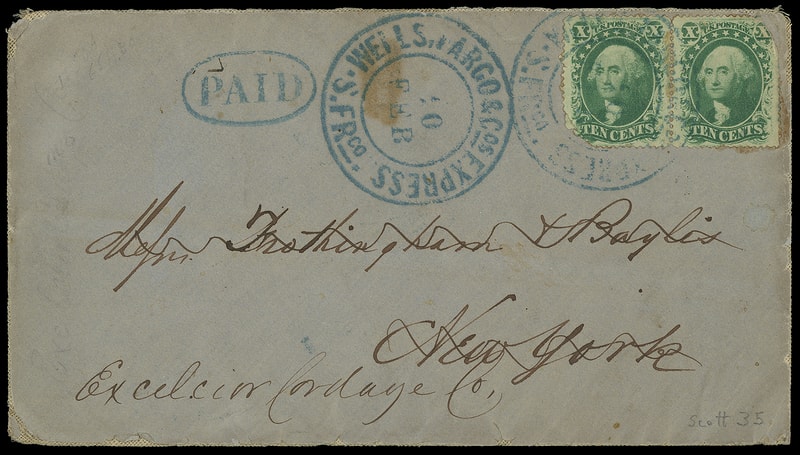 PAID
WELLS, FARGO & Cos EXPRESS. S. FRco.
10
FEB
U.S. POSTAGE
X X
TEN CENTS
U.S. POSTAGE
X X
TEN CENTS
EXPRESS
Messrs. Frothingham & Baylis
New York
Excelsior Cordage Co,
Scott 35